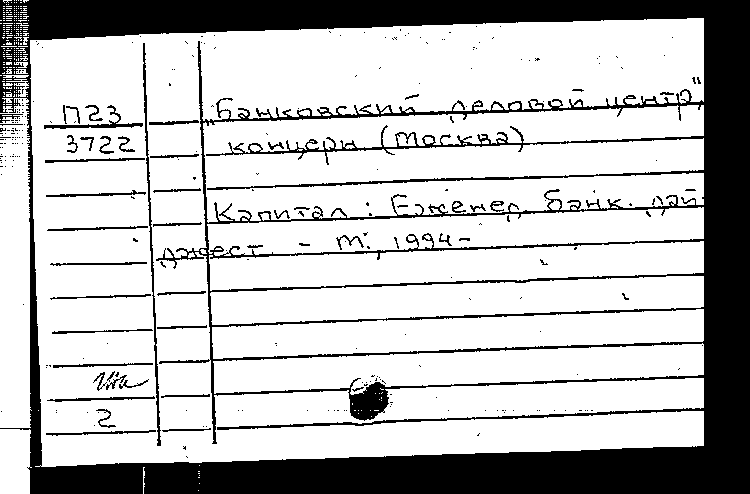 П23
3722
„Банковский деловой центр",
концерн (Москва)
Капитал : Еженед. банк. дай-
джест – М:, 1994–
2